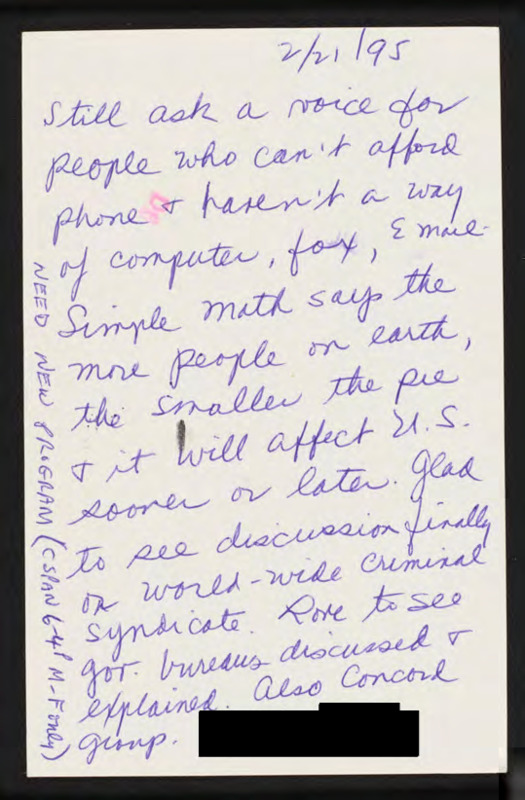 2/21/95
Still ask a voice for
people who can't afford
phone & haven't a way
of computer, fax, E mail.
Simple math says the
more people on earth,
the smaller the pie
& it will affect U.S.
sooner or later. Glad
to see discussion finally
on world-wide criminal
syndicate. Love to see
gov. bureaus discussed &
explained. Also Concord
group.
NEED NEW PROGRAM (CSPAN 6-4P M-F only)